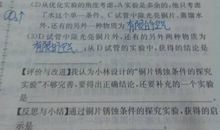 (2)从优化实验的角度考虑,A实验是多余的,他只考虑
了水这个单一条件。C试管中除光亮铜片、蒸馏水
外,还有的另外一种物质为
(3)D试管中除光亮铜片外,还有的另外两种物质为
,从D试管的实验中,获得的结论是
【评价与改进】我认为小林设计的“铜片锈蚀条件的探究
实验”不够完善,要得出正确结论,还要补充的一个实验
是
【反思与小结】通过铜片锈蚀条件的探究实验,获得的启
示是